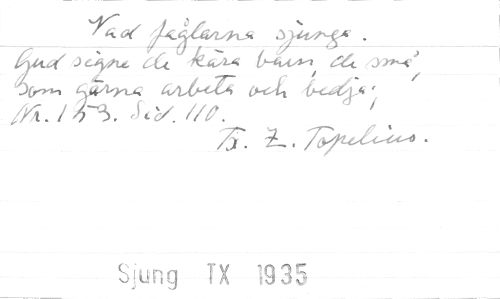 Vad fåglarna sjunga.
Gud signe de kära barn, de små,
som gärna arbeta och bedja;
Nr. 153. Sid. 110.
Tx. Z. Topelius.
Sjung TX 1935